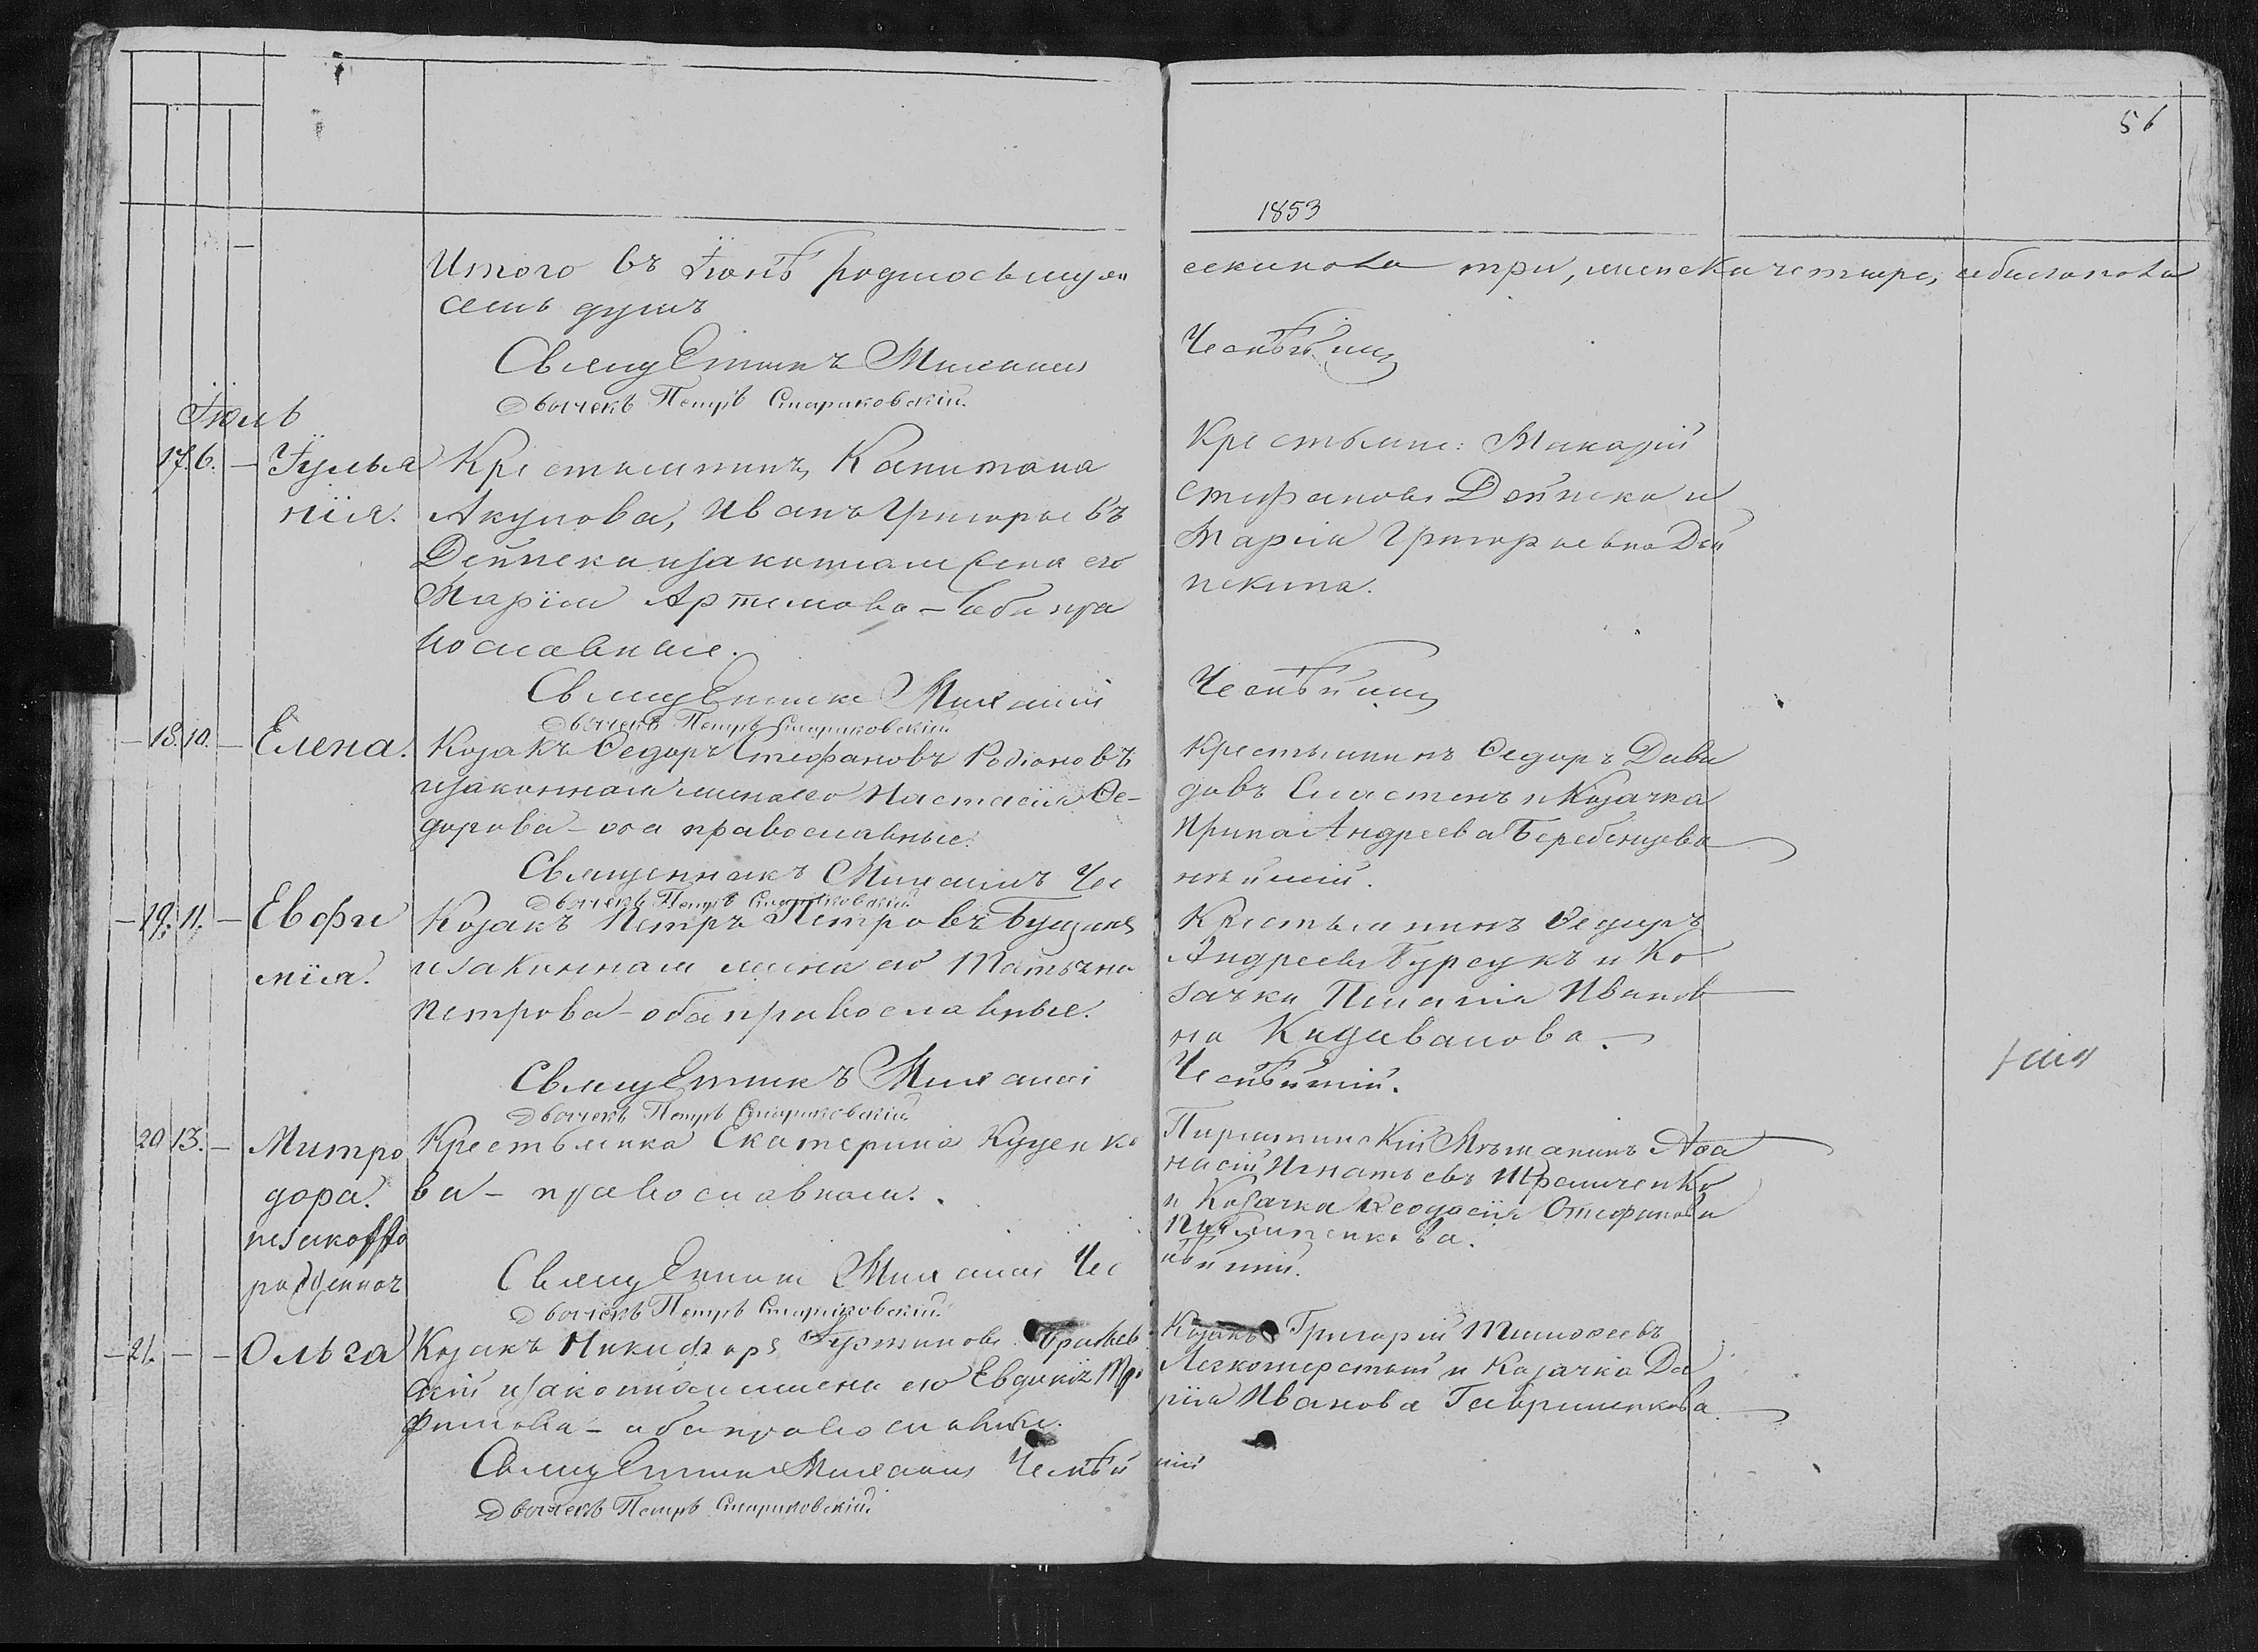 56
1853
Итого въ Іюнѣ родилось муже
секаго три, женска четыре, обоего пола
семь душъ
Священникъ Михаилъ
Чеснѣйшій
Дьячекъ Петръ Стариковскій.
Іюль
17. 6. — Іулья
нія.
Крестьянинъ Капитана
Акулова, Иванъ Григорьевъ
Дейнека и законная жена его
Марія Артемова — оба пра
вославные.
Крестьяне: Макарій
Стефановъ Дейнека и
Марія Григорьевна Дей
некина.
Священникъ Михаилъ
Чеснѣйшій
Дьячекъ Петръ Стариковскій
— 18. 10. — Елена.
Козакъ Ѳедоръ Стефановъ Родіоновъ
и законная жена его Настасія Ѳе-
дорова — оба православные.
Крестьянинъ Ѳедоръ Дави
довъ Сластенъ и Козачка
Ирина Андреева Беребенцева
Священникъ Михаилъ Чес
нѣйшій.
Дьячекъ Петръ Стариковскій
— 19. 11. — Евфи
мія.
Козакъ Петръ Петровъ
и законная жена его Татьяна
Петрова — оба православные.
Крестьянинъ Ѳедоръ
Андреевъ Бурсукъ и Ко
зачка Пелагія Иванов
на
Священникъ Михаилъ
Чеснѣйшій.
Дьячекъ Петръ Стариковскій
20 13. — Митро
дора.
незакон̃о
рожденноя
Крестьянка Екатерина Куценко
ва — православная.
Пирятинскій Мѣщанинъ Аѳа
насій Игнатьевъ
и Козачка Ѳеодосія Стефанова
Священникъ Михаилъ Чес
нѣйшій.
Дьячекъ Петръ Стариковскій.
— 21. — — Ольга
Козакъ Никифоръ
и законная жена его Евдокія Тро
фимова — оба православные.
Козакъ Григорій Тимоѳеевъ
Легкошерстый и Козачка Да
рія Иванова Гавриленкова.
Священникъ Михаилъ Чеснѣй
шій
Дьячекъ Петръ Стариковскій